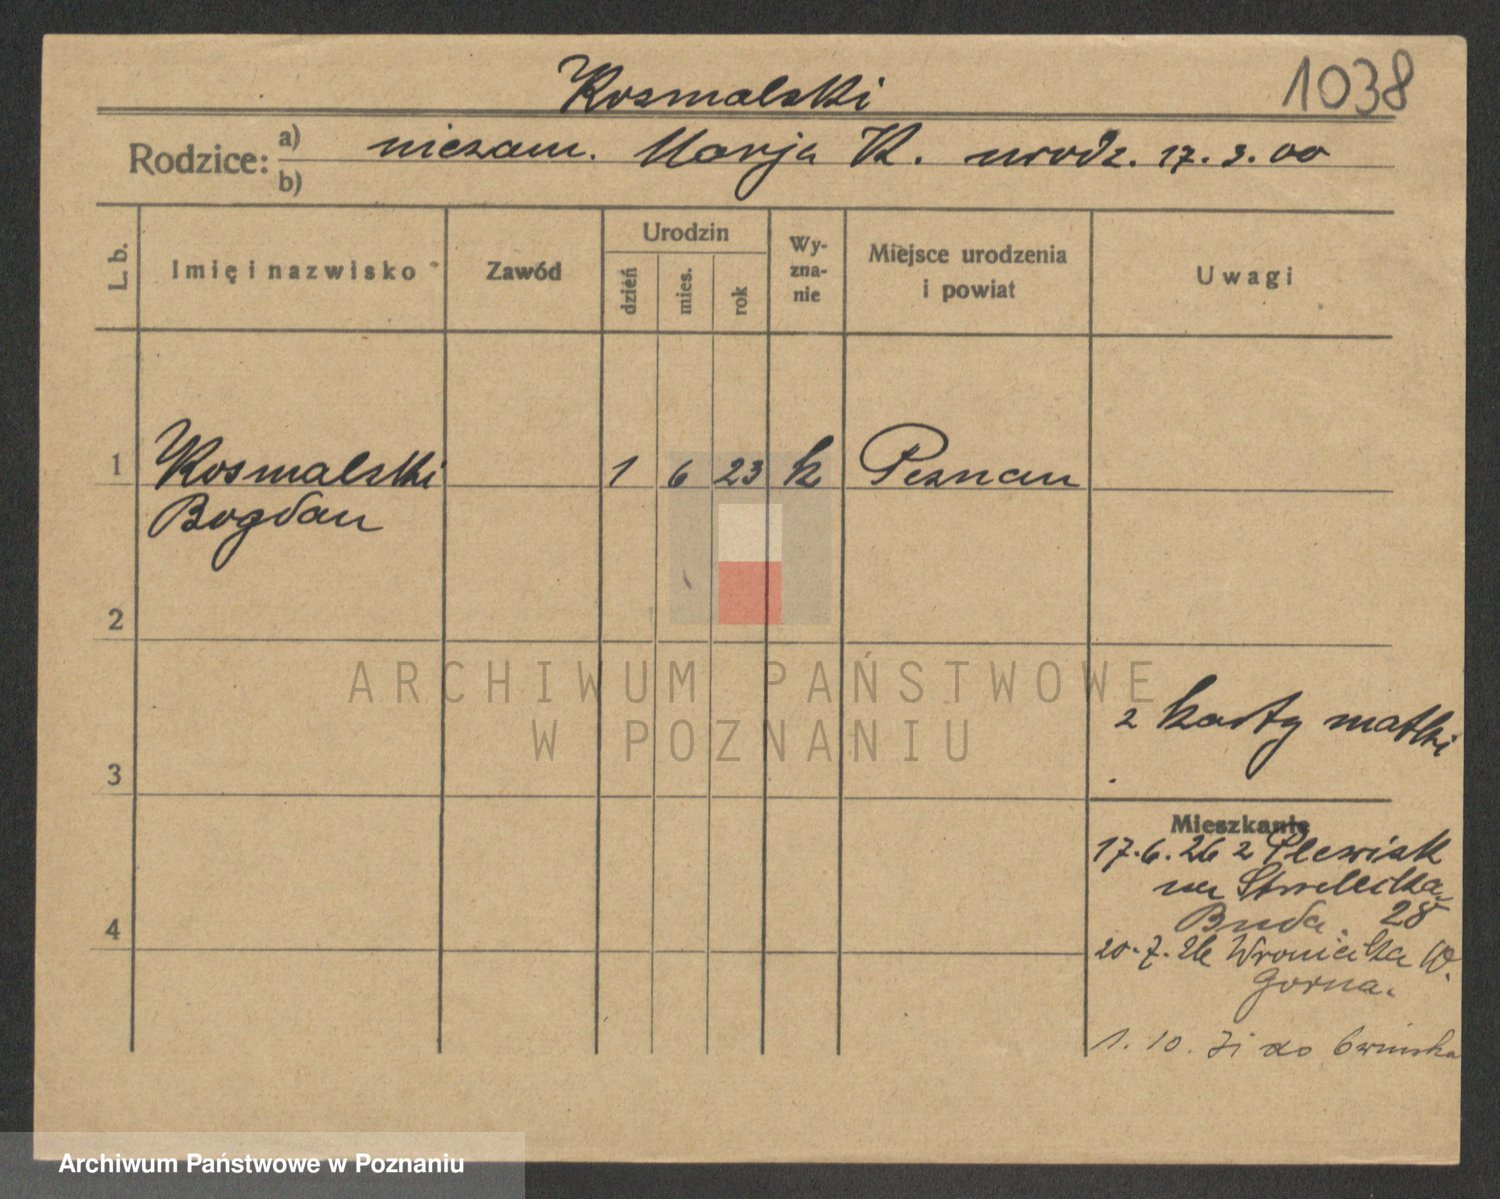 Kosmalski
1038
Rodzice: a) niezam. Marja K. urodz. 17. 3. 00
b)
L. b.
Imię i nazwisko
Zawód
Urodzin
dzień
mies.
rok
Wy-
zna-
nie
Miejsce urodzenia
i powiat
Uwagi
1 Kosmalski 1 6 23 k Poznan
Bogdan
2
z karty matki
3
Mieszkanie
17.6.26 z Plewisk
na Strzelecka
Buda. 28
20.7.26 Wroniecka W.
Gorna.
4
1. 10. do
ARCHIWUM PAŃSTWOWE
W POZNANIU
Archiwum Państwowe w Poznaniu